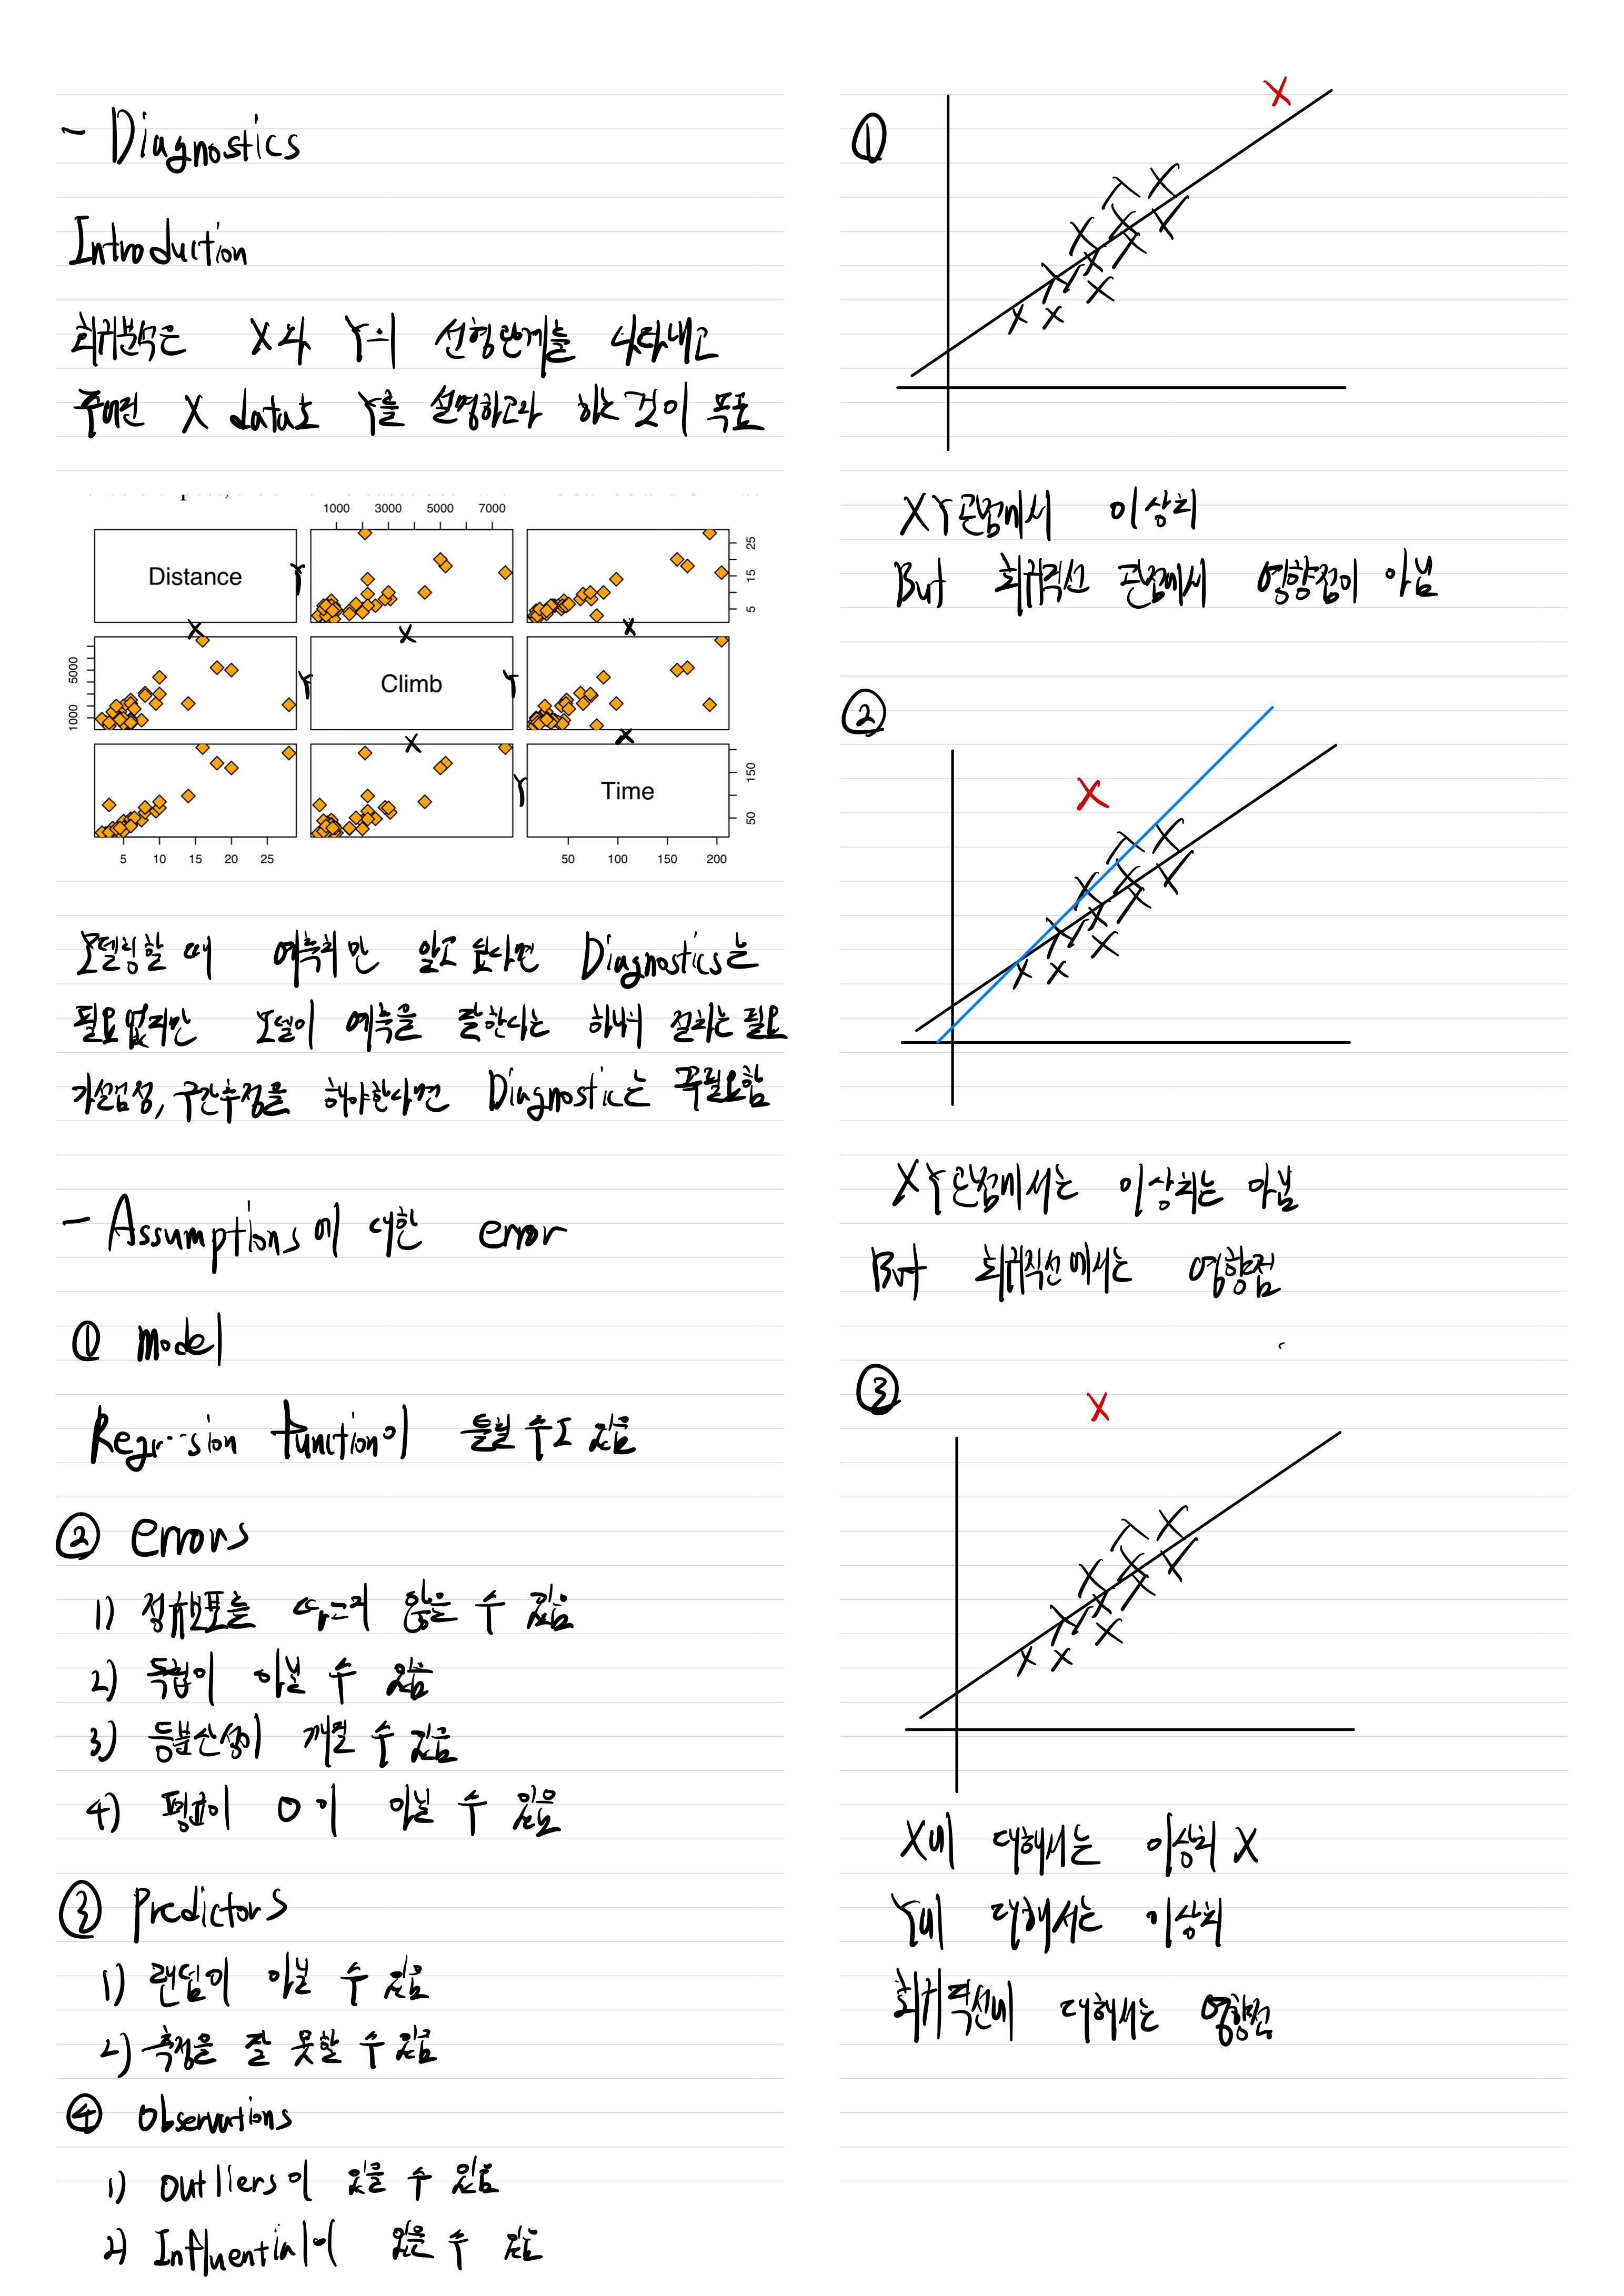 - Diagnostics
Introduction
회귀분석은 X와 Y의 선형관계를 나타내고
주어진 X data로 Y를 설명하고자 하는 것이 목표
1000 3000 5000 7000
Distance
Y
5 15 25
X
X
X
1000 5000
Y
Climb
Y
X
X
Y
Time
50 150
5 10 15 20 25
50 100 150 200
모델링할 때 예측치만 알고 싶다면 Diagnostics는
필요없지만 모델이 예측을 잘한다는 하나의 절차는 필요
가설검정, 구간추정을 해야한다면 Diagnostic는 꼭필요함
- Assumptions에 대한 error
① model
Regression function이 틀릴 수도 있음
② errors
1) 정규분포를 따르지 않을 수 있음
2) 독립이 아닐 수 있음
3) 등분산성이 깨질 수 있음
4) 평균이 0이 아닐 수 있음
③ Predictors
1) 랜덤이 아닐 수 있음
2) 측정을 잘 못할 수 있음
④ observations
1) outliers이 있을 수 있음
2) Influential이 있을 수 있음
①
X
XY관점에서 이상치
But 회귀직선 관점에서 영향점이 아님
②
X
XY관점에서는 이상치는 아님
But 회귀직선에서는 영향점
③
X
X에 대해서는 이상치 X
Y에 대해서는 이상치
회귀직선에 대해서는 영향점